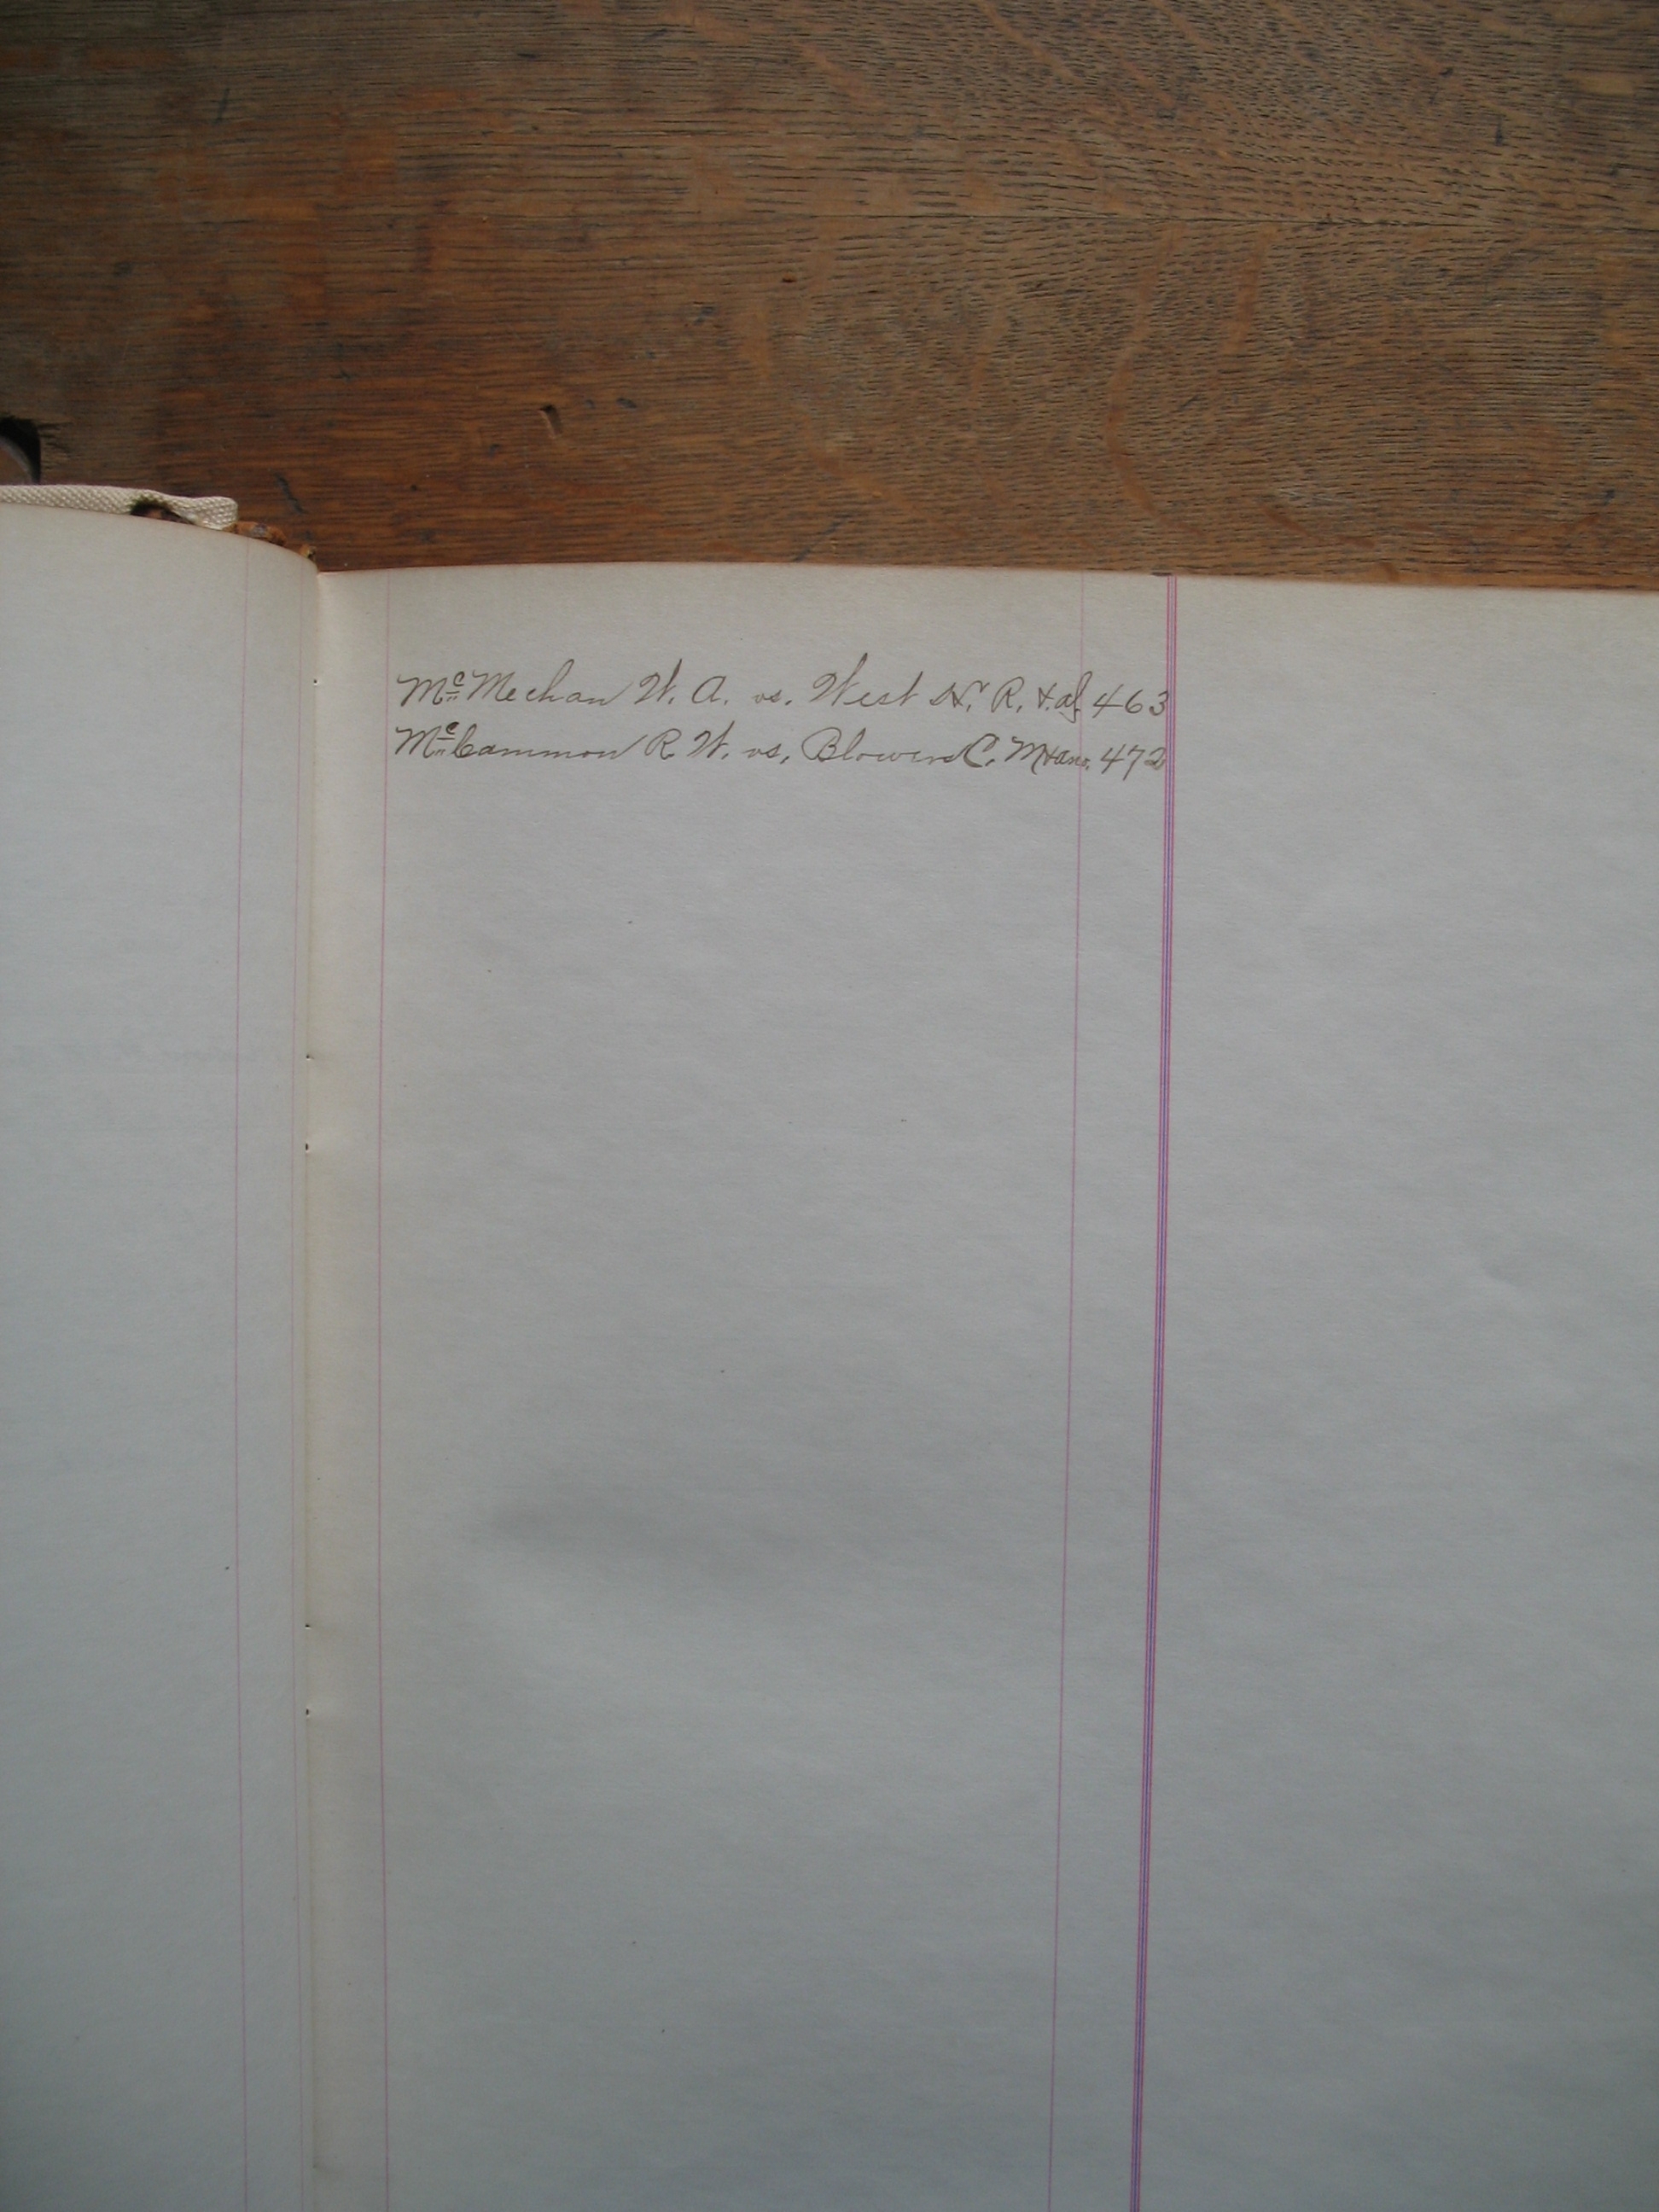 McMechan W. A. vs. West N. R. & al. 463
McCammon R. W. vs. Blowers C. M & ano. 472